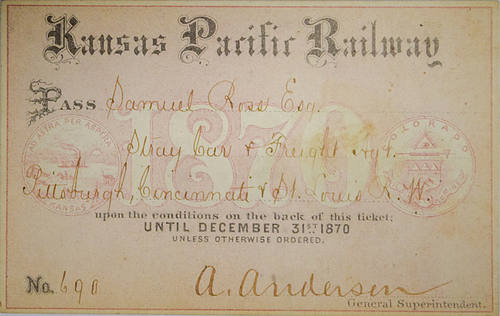 Kansas Pacific Railway
Pass Samuel Ross Esq.
1870
AD ASTRA PER ASPERA
KANSAS
COLORADO
Stray Car & Freight Agt.
Pittsburgh, Cincinnati & St. Louis R. W.
upon the conditions on the back of this ticket;
UNTIL DECEMBER 31ST 1870
UNLESS OTHERWISE ORDERED.
No. 690
A. Anderson
General Superintendent.